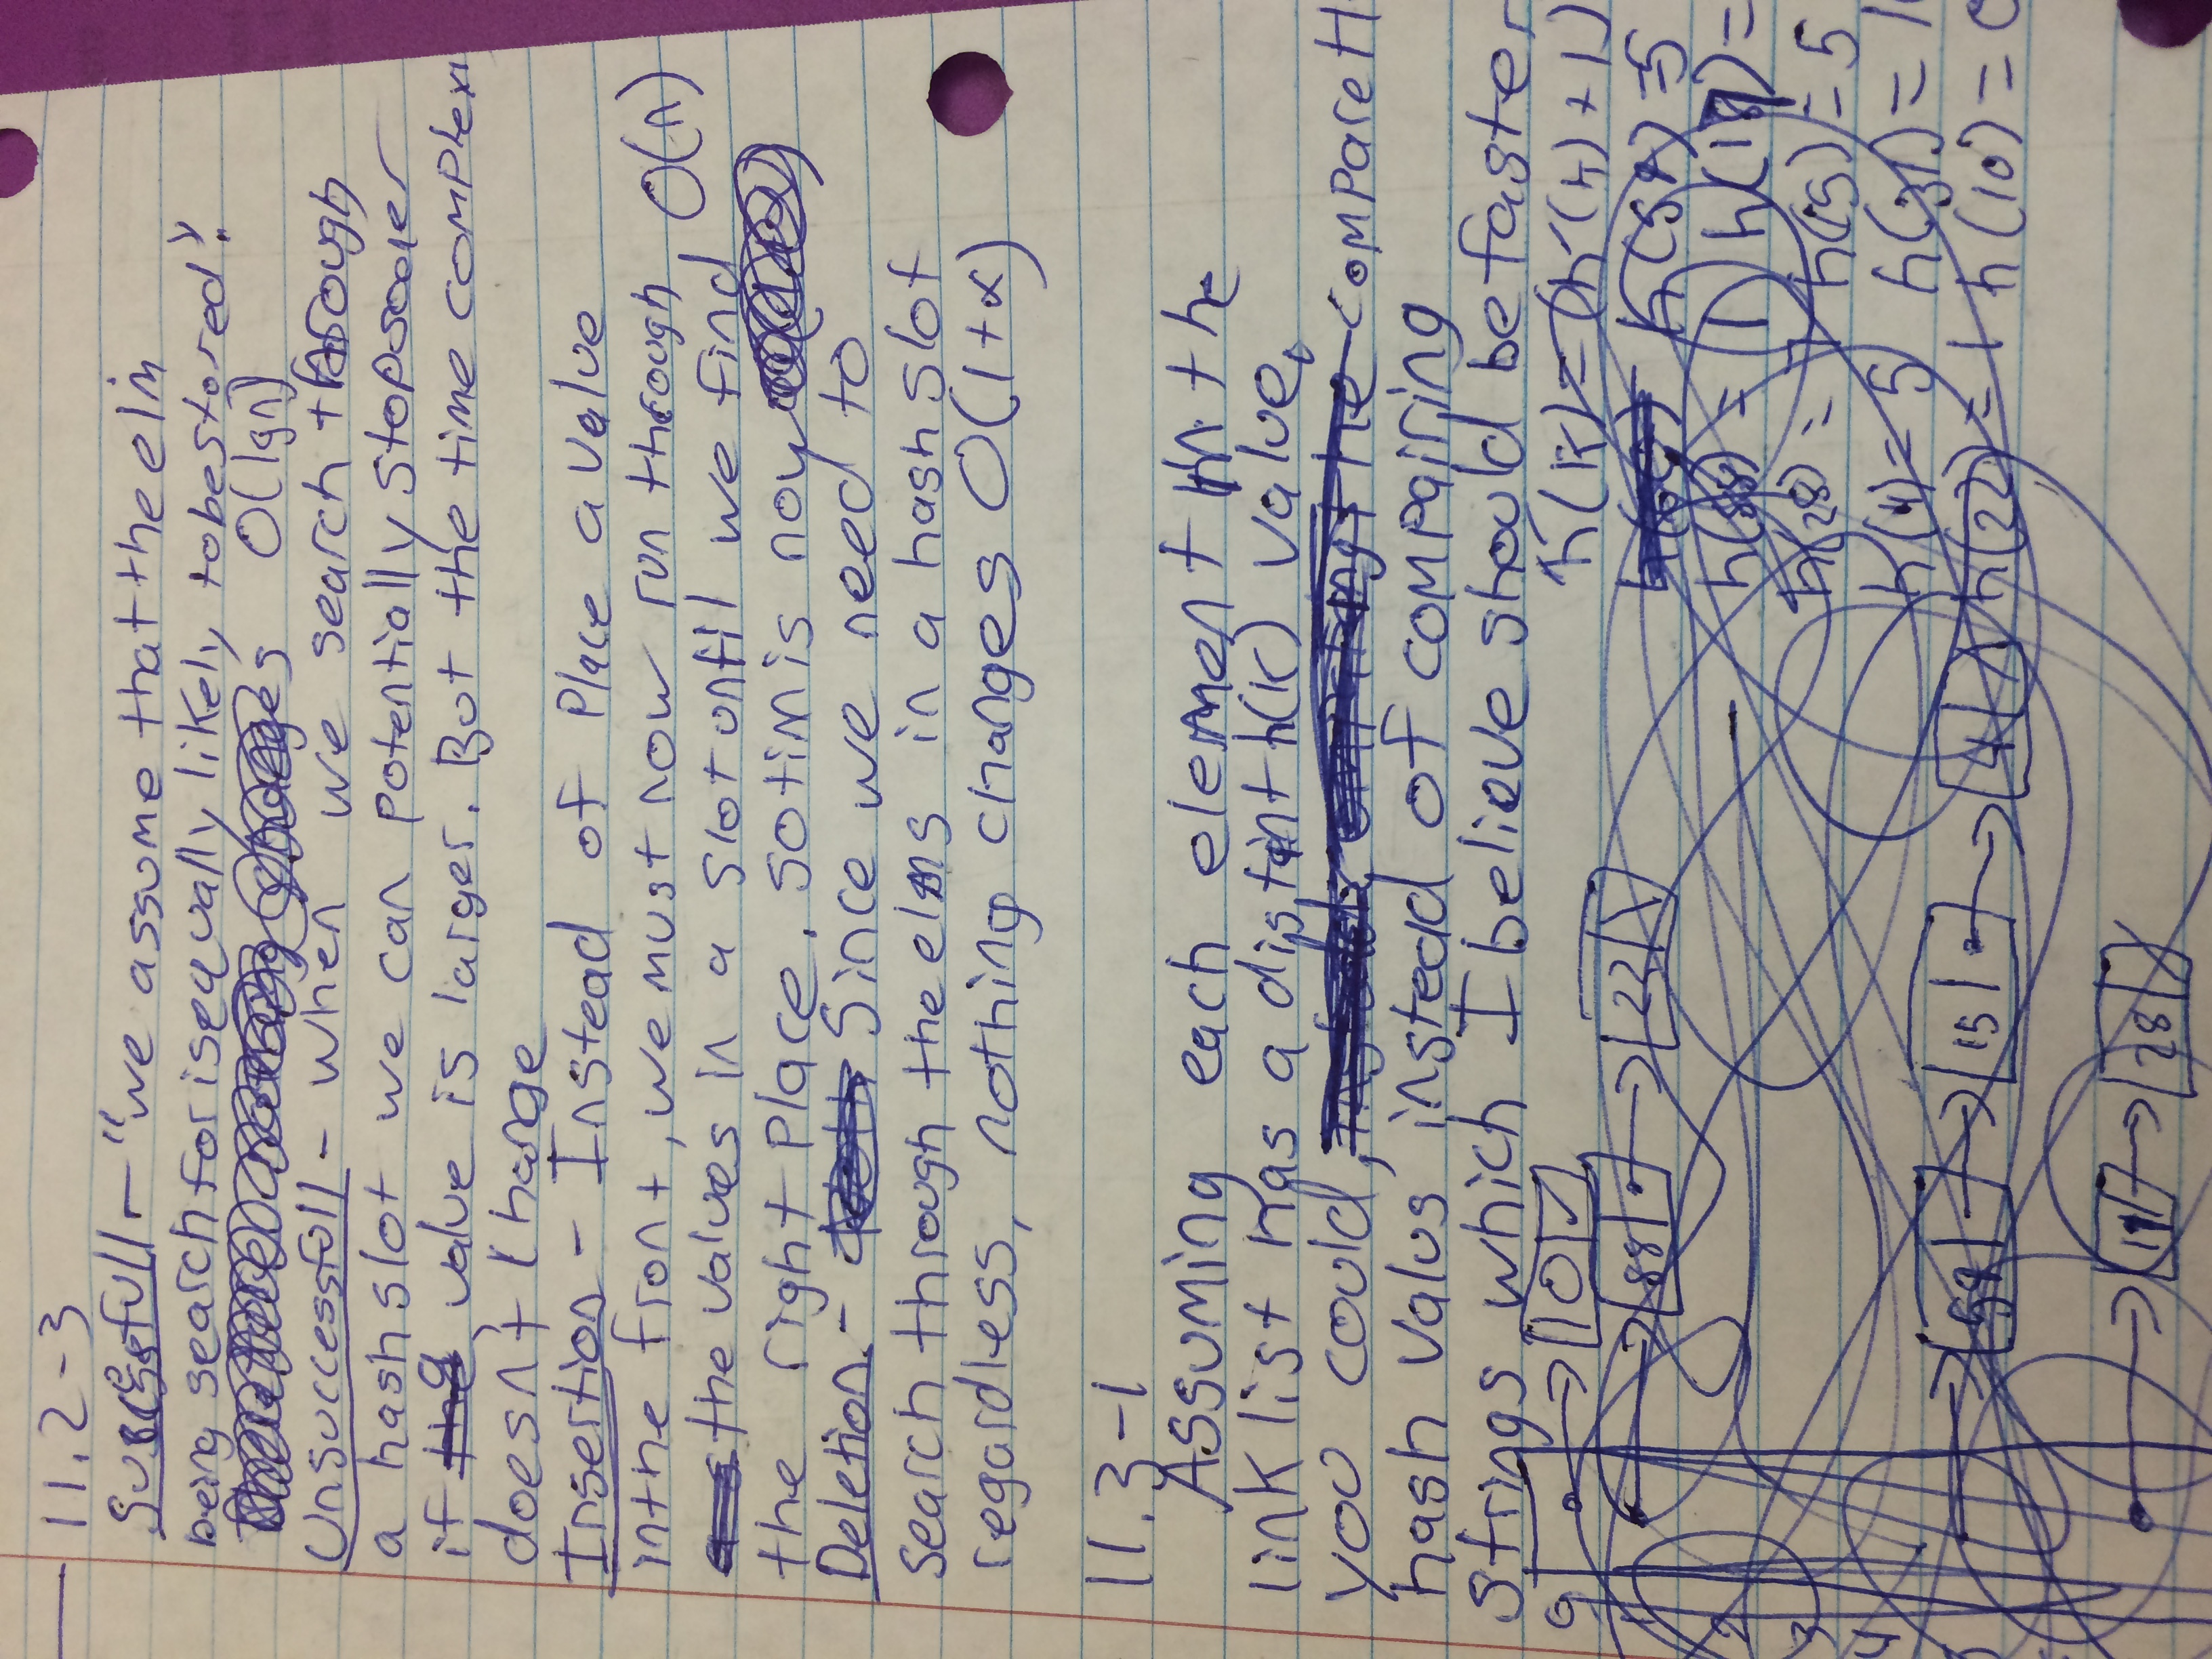 11.2-3
Successfull - "we assume that the elm
being search for is equally likely to be stored".
O(lgn)
Unsuccessfull - When we search through
a hash slot we can potentially stop sooner
if a value is larger. But the time complexi
doesn't change
Insertion - Instead of Place a value
in the front, we must now run through O(n)
the values in a slot until we find
the right Place. so tim is now
Deletion - Since we need to
search through the elms in a hash slot
regardless, nothing changes O(1+α)
11.3-1
Assuming each element in the
link list has a distint h(k) value,
you could, compare th
hash valus instead of compairing
strings which I believe should be faster
10 h(k)=(h'(k)+1)
1 88 22 h(59)=5
2 h(88)=1 h(17)=
3 h(28)=7 h(15)=5
4 h(4)=5 h(31)=1
59 15 4 h(22)=1 h(10)=0
17 28